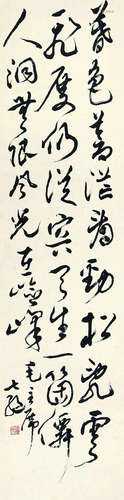 暮色苍茫看劲松乱云
飞度仍从容天生一个仙
人洞无限风光在险峰
毛主席
七绝